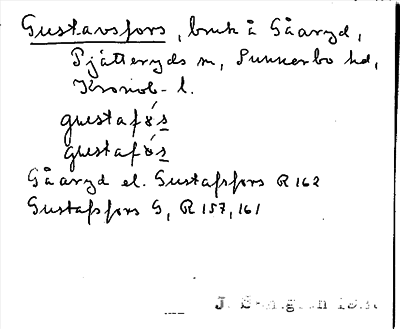 Gustavsfors, bruk å Såaryd,
Pjätteryds sn, Sunnerbo hd,
Kronob. l.
gustafǿs
gustafǿs
Såaryd el. Gustafsfors R 162
Gustafsfors G, R 157, 161